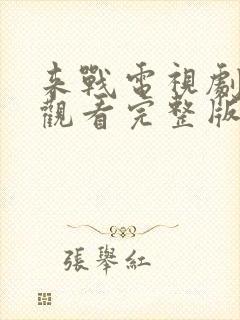 來戰電視劇
觀看完整版
張舉紅